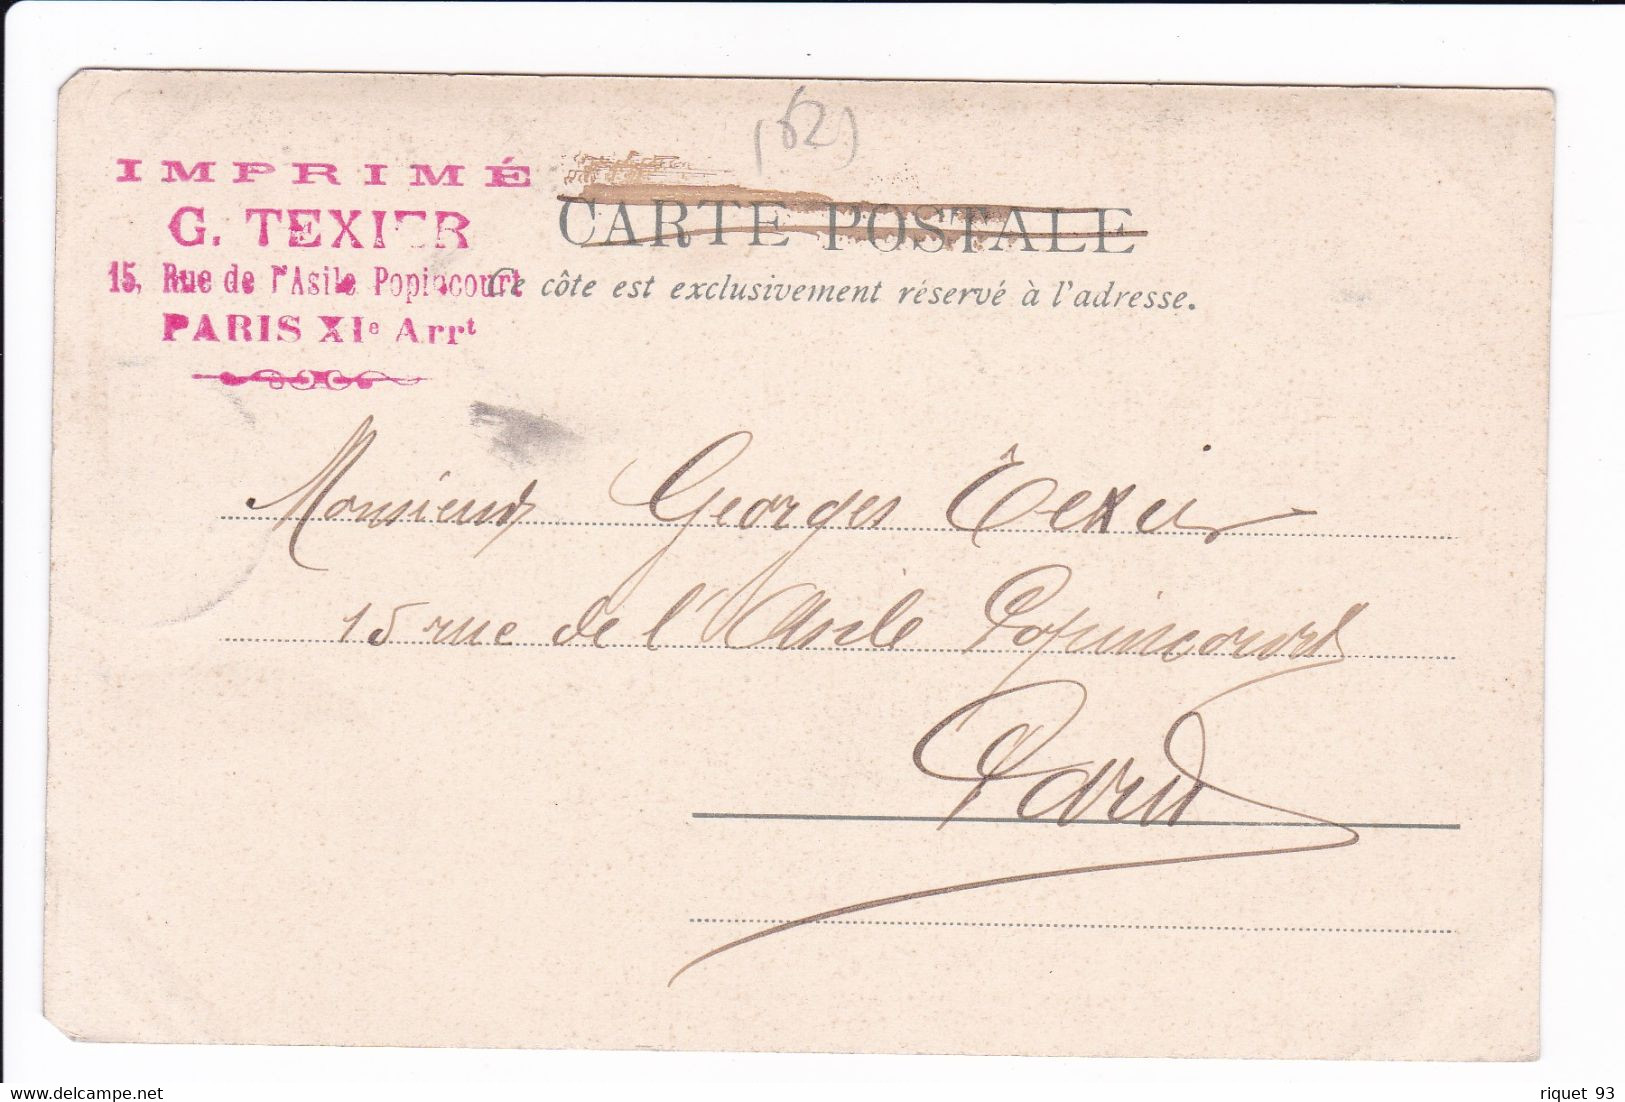 (62)
IMPRIMÉ
G. TEXIER
15, Rue de l'Asile Popincourt
PARIS XIe Arrt
CARTE POSTALE
Ce côte est exclusivement réservé à l'adresse.
Monsieur Georges Texier
15 rue de l'Asile Popincourt
Paris
riquet 93